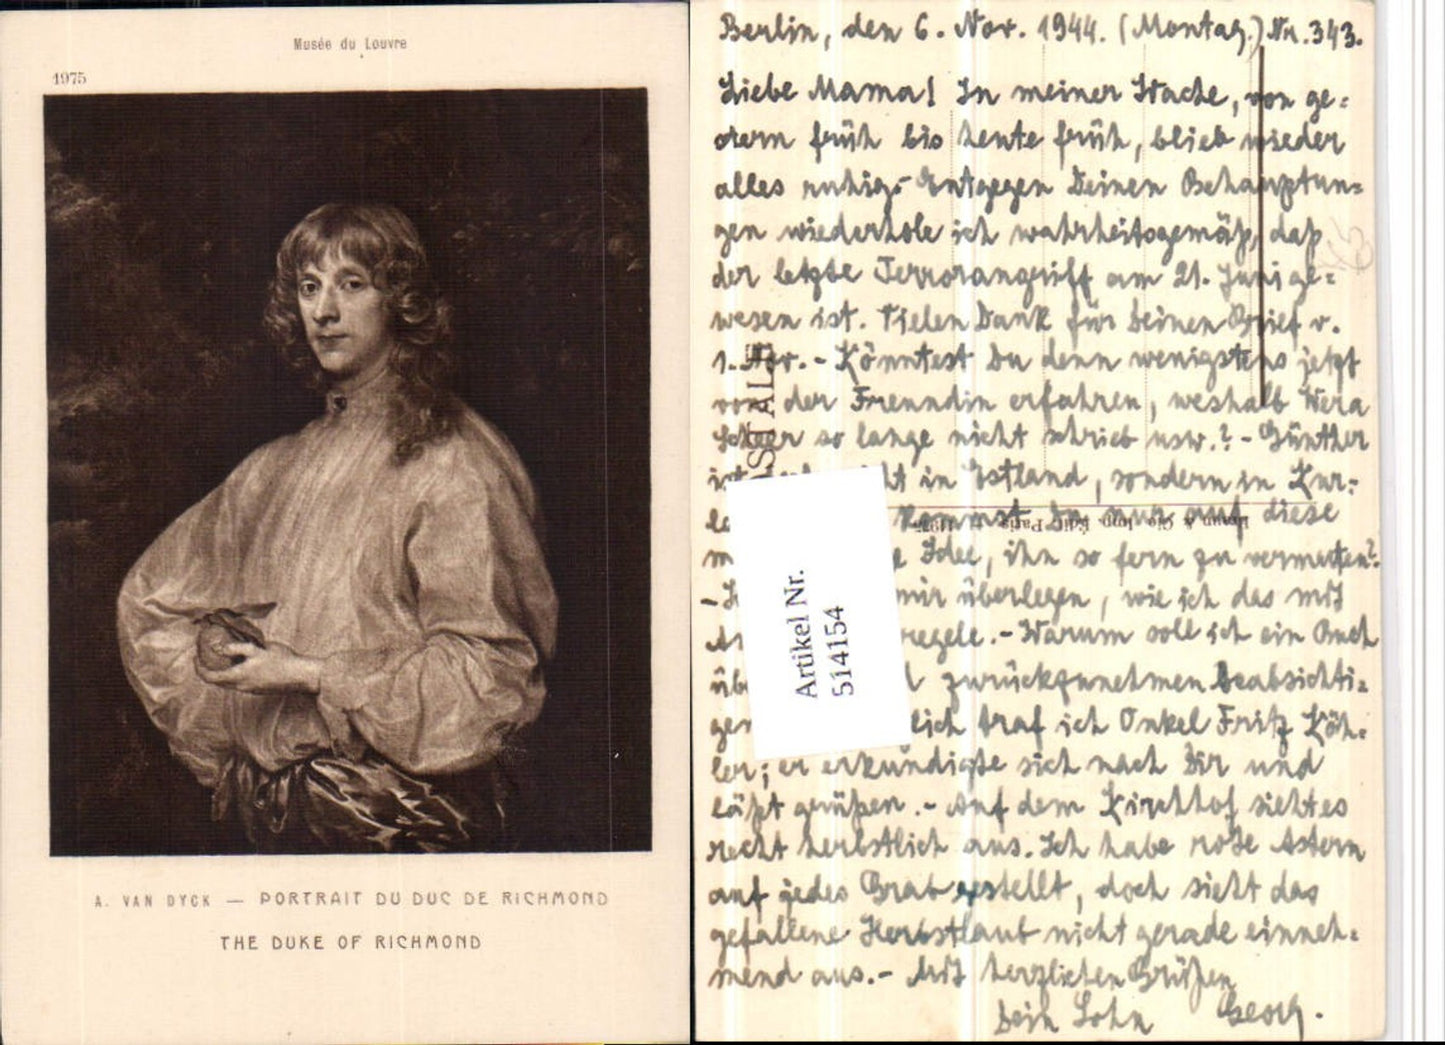 Musée du Louvre
1975
A. VAN DYCK — PORTRAIT DU DUC DE RICHMOND
THE DUKE OF RICHMOND
Berlin, den 6. Nov. 1944. (Montag.) Nr. 343.
Liebe Mama! In meiner Wache, von ge=
stern früh bis heute früh, blieb wieder
alles ruhig. - Entgegen Deinen Behauptun=
gen wiederhole ich wahrheitsgemäß, daß
der letzte Terrorangriff am 21. Juni ge=
wesen ist. Vielen Dank für Deinen Brief v.
1. Nov. - Könntest Du denn wenigstens jetzt
von der Freundin erfahren, weshalb Wera
Scheer so lange nicht schrieb usw.? - Günther
ist in Estland, sondern in Kur=
kommst Du nur auf diese
Idee, ihn so fern zu vermuten?
mir überlegen, wie ich das mit
regele. - Warum soll ich ein Buch
zurückzunehmen beabsichti=
gen traf ich Onkel Fritz Köh=
ler; er erkundigte sich nach Dir und
läßt grüßen. - Auf dem Kirchhof sieht es
recht herbstlich aus. Ich habe rote Astern
auf jedes Grab gestellt, doch sieht das
gefallene Herbstlaub nicht gerade einneh=
mend aus. - Mit herzlichen Grüßen
Dein Sohn Georg.
Artikel Nr.
514154